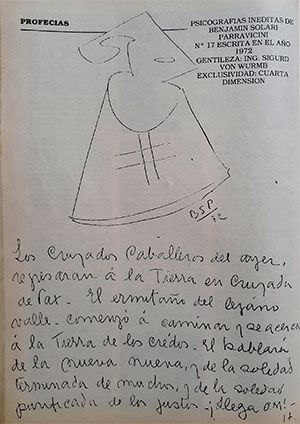 PROFECIAS
PSICOGRAFIAS INEDITAS DE
BENJAMIN SOLARI
PARRAVICINI
N° 17 ESCRITA EN EL AÑO
1972
GENTILEZA: ING. SIGURD
VON WURMB
EXCLUSIVIDAD: CUARTA
DIMENSION
BSP
72
Los Cruzados Caballeros del ayer,
regresaran á la Tierra en Cruzada
de Paz. El ermitaño del lejano
valle. comenzó á caminar y se acerca
á la Tierra de los credos. El hablará
de la nueva nueva, y de la soledad
terminada de muchos, y de la soledad
purificada de los justos ¡Llega OM!-
17